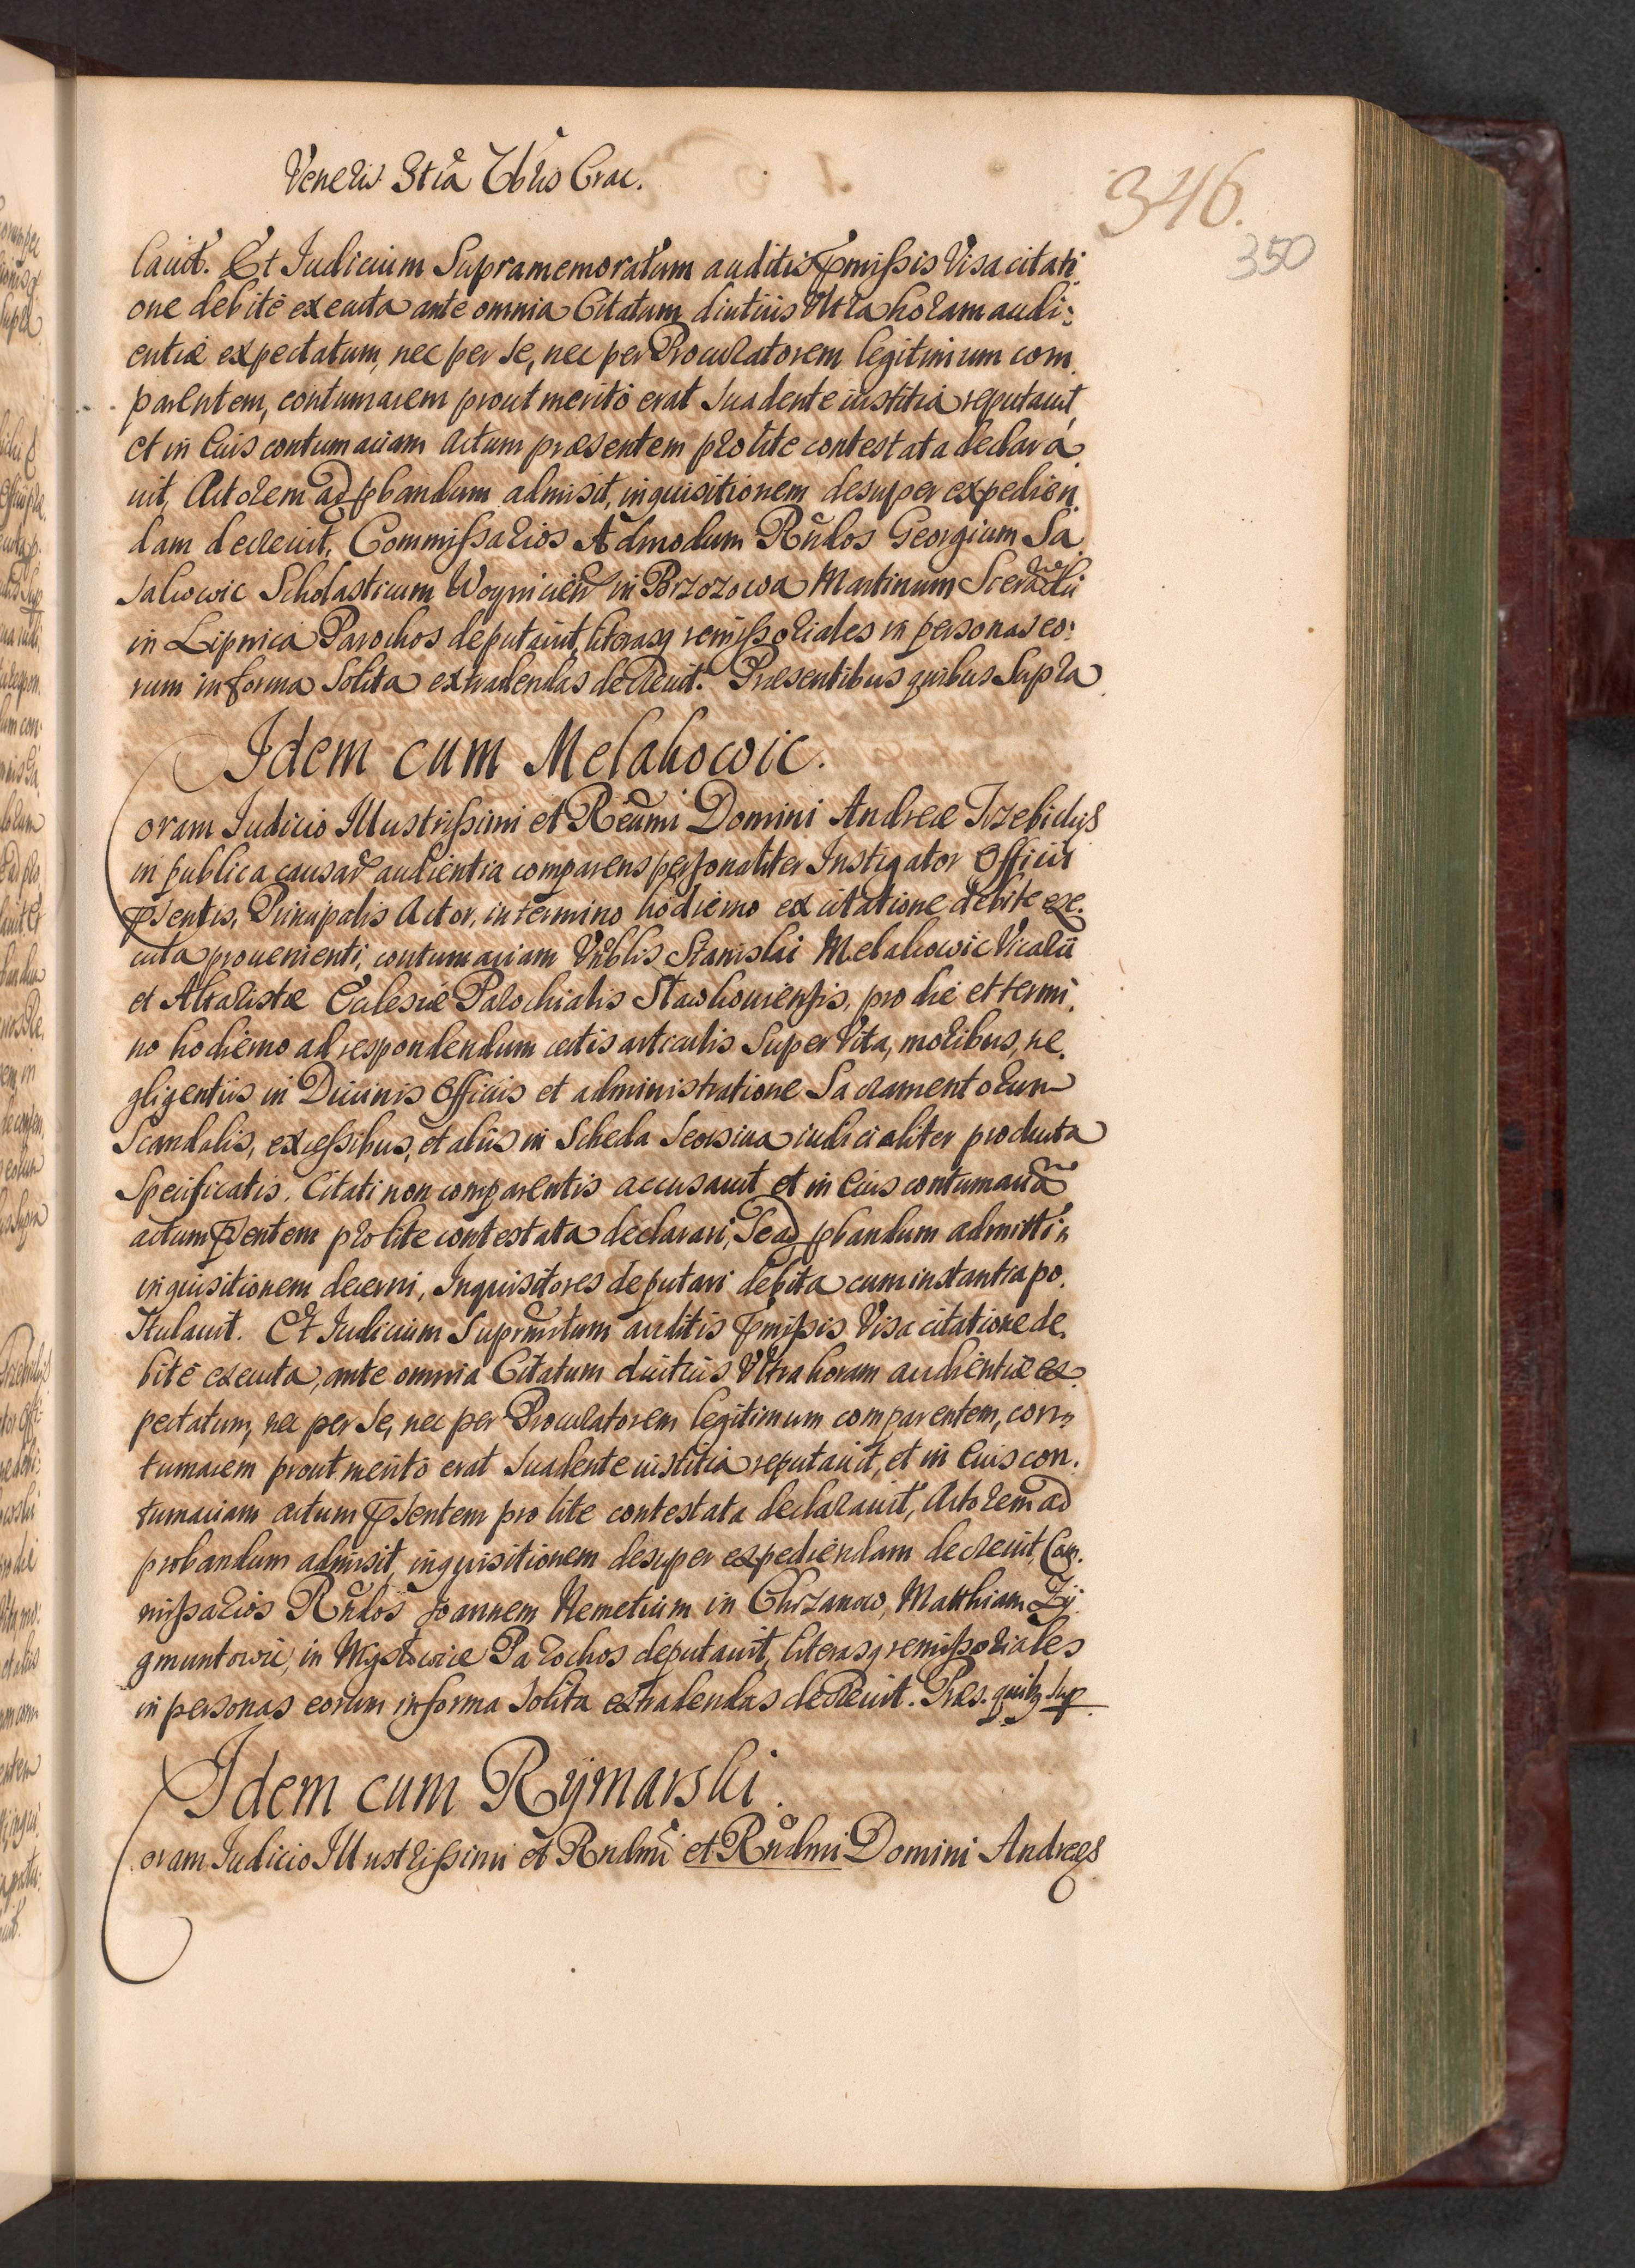 Veneris 3tia 7bris Crac.
346.
350
lauit. Et Iudicium Supramemoratum auditis pmissis Visa citati:
one debitè executa ante omnia Citatum diutius Vltra horam audi:
entiæ expectatum, nec per se, nec per Procuratorem legitimum com.
parentem, contumacem prout meritò erat Suadente iustitia reputauit,
et in Eius contumaciam actum præsentem pro lite contestata declara.
uit, Actorem ad pbandum admisit, inquisitionem desuper expedien.
dam decreuit, Commissarios Admodum Rndos Georgium Sa.
Scholasticum Woynicień in Brzozowa Martinum
in Lipnica Parochos deputauit, literasq remissoriales in personas eo:
rum in forma Solita extradendas decreuit. Præsentibus quibus Supra
Idem cum Melakowic.
Coram Iudicio Illustrissimi et Reũmi Domini Andreæ Trzebicky
in publica causarũ audientia comparens personaliter Instigator Officii
psentis, Principalis Actor, in termino hodierno ex citatione debite exe.
cuta prouenienti, contumaciam Vnblis Stanislai Melakowic Vicarii
et Altaristæ Ecclesiæ Parochialis Slawkouiensis, pro die et termi.
no hodierno ad respondendum certis articulis Super Vita, moribus, ne.
gligentiis in Diuinis Officiis et administratione Sacramentorum
Scandalis, excessibus, et aliis in Scheda Seorsiua iudicialiter producta
Specificatis. Citati non comparentis accusauit et in Eius contumaciã
actum psentem pro lite contestata declarari, Se ad pbandum admitti,
inquisitionem decerni, Inquisitores deputari debita cum instantia po.
stulauit. Et Iudicium Suprmrtum auditis pmissis Visa citatione de.
bitè executa, ante omnia Citatum diutius Vltra horam audientiæ ex.
pectatum, nec per se, nec per Procuratorem legitimum comparentem, con:
tumacem prout meritò erat Suadente iustitia reputauit, et in Eius con.
tumaciam actum psentem pro lite contestata declarauit, Actorem ad
probandum admisit, inquisitionem desuper expediendam decreuit, Com.
missarios Rndos Joannem Nemetium in Chrzanow, Matthiam Zÿ.
gmuntowic, in Mystowice Parochos deputauit, literasq remissoriales
in personas eorum in forma Solita extradendas decreuit. Præs. quibꝫ Sup.
Idem cum Rÿmarski.
Coram Iudicio Illustrissimi et Rndmi et Rndmi Domini Andreæ